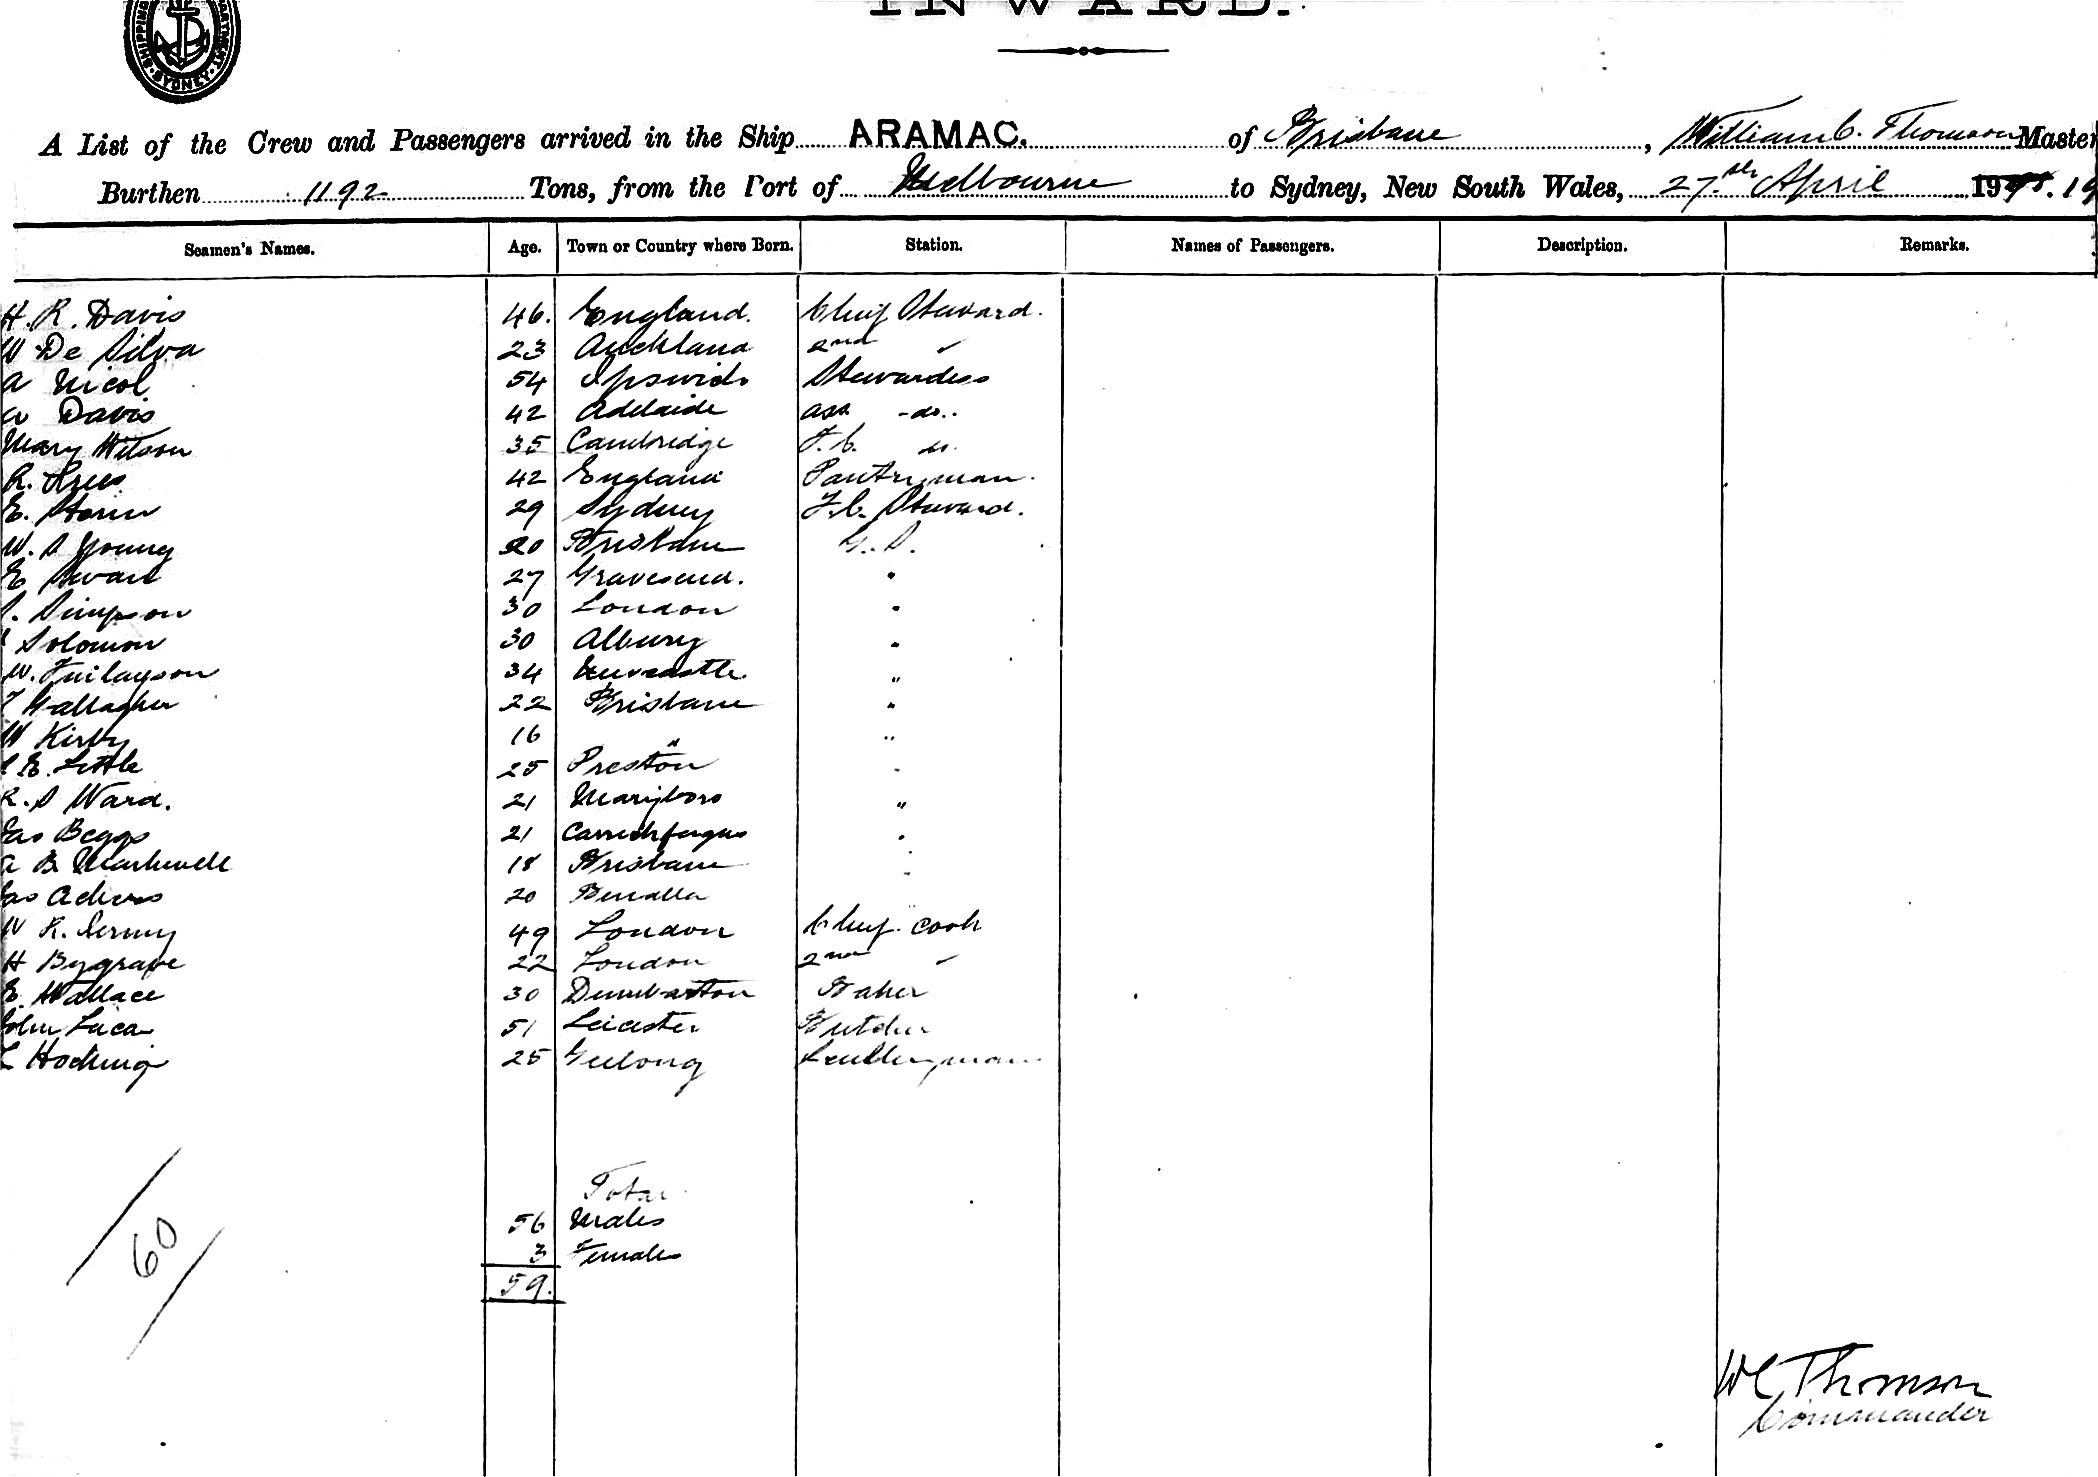 INWARD.
SYDNEY
A List of the Crew and Passengers arrived in the Ship ARAMAC. of Brisbane, William C. Thomson Master
Burthen 1192 Tons, from the Port of Melbourne to Sydney, New South Wales, 27th April 19
Seamen's Names. Age. Town or Country where Born. Station. Names of Passengers. Description. Remarks.
H. R. Davis 46. England. Chief Steward.
W De Silva 23 Auckland 2nd "
A Nicol 54 Ipswich Stewardess
A Davis 42 Adelaide ass -do..
Mary Wilson 35 Cambridge F.C. do.
R. 42 England Pantryman.
E. Storm 29 Sydney F.C. Steward.
W. S Young 20 Brisbane G.S.
E Swan 27 Gravesend. "
Simpson 30 London "
Solomon 30 Albury "
W. Finlayson 34 Newcastle "
Gallagher 22 Brisbane "
W Kirby 16 " "
E. Little 25 Preston "
R. S Ward. 21 Maryboro "
Jas Beggs 21 Carrickfergus "
A B Markwell 18 Brisbane "
Jas 20 Benalla "
W R. 49 London Chief Cook
H Bygrave 22 London 2nd "
E. Wallace 30 Dumbarton Baker
John Lucas 51 Leicester Butcher
L Hocking 25 Geelong Sculleryman
Total
56 Males
3 Females
59.
60
W C Thomson
Commander